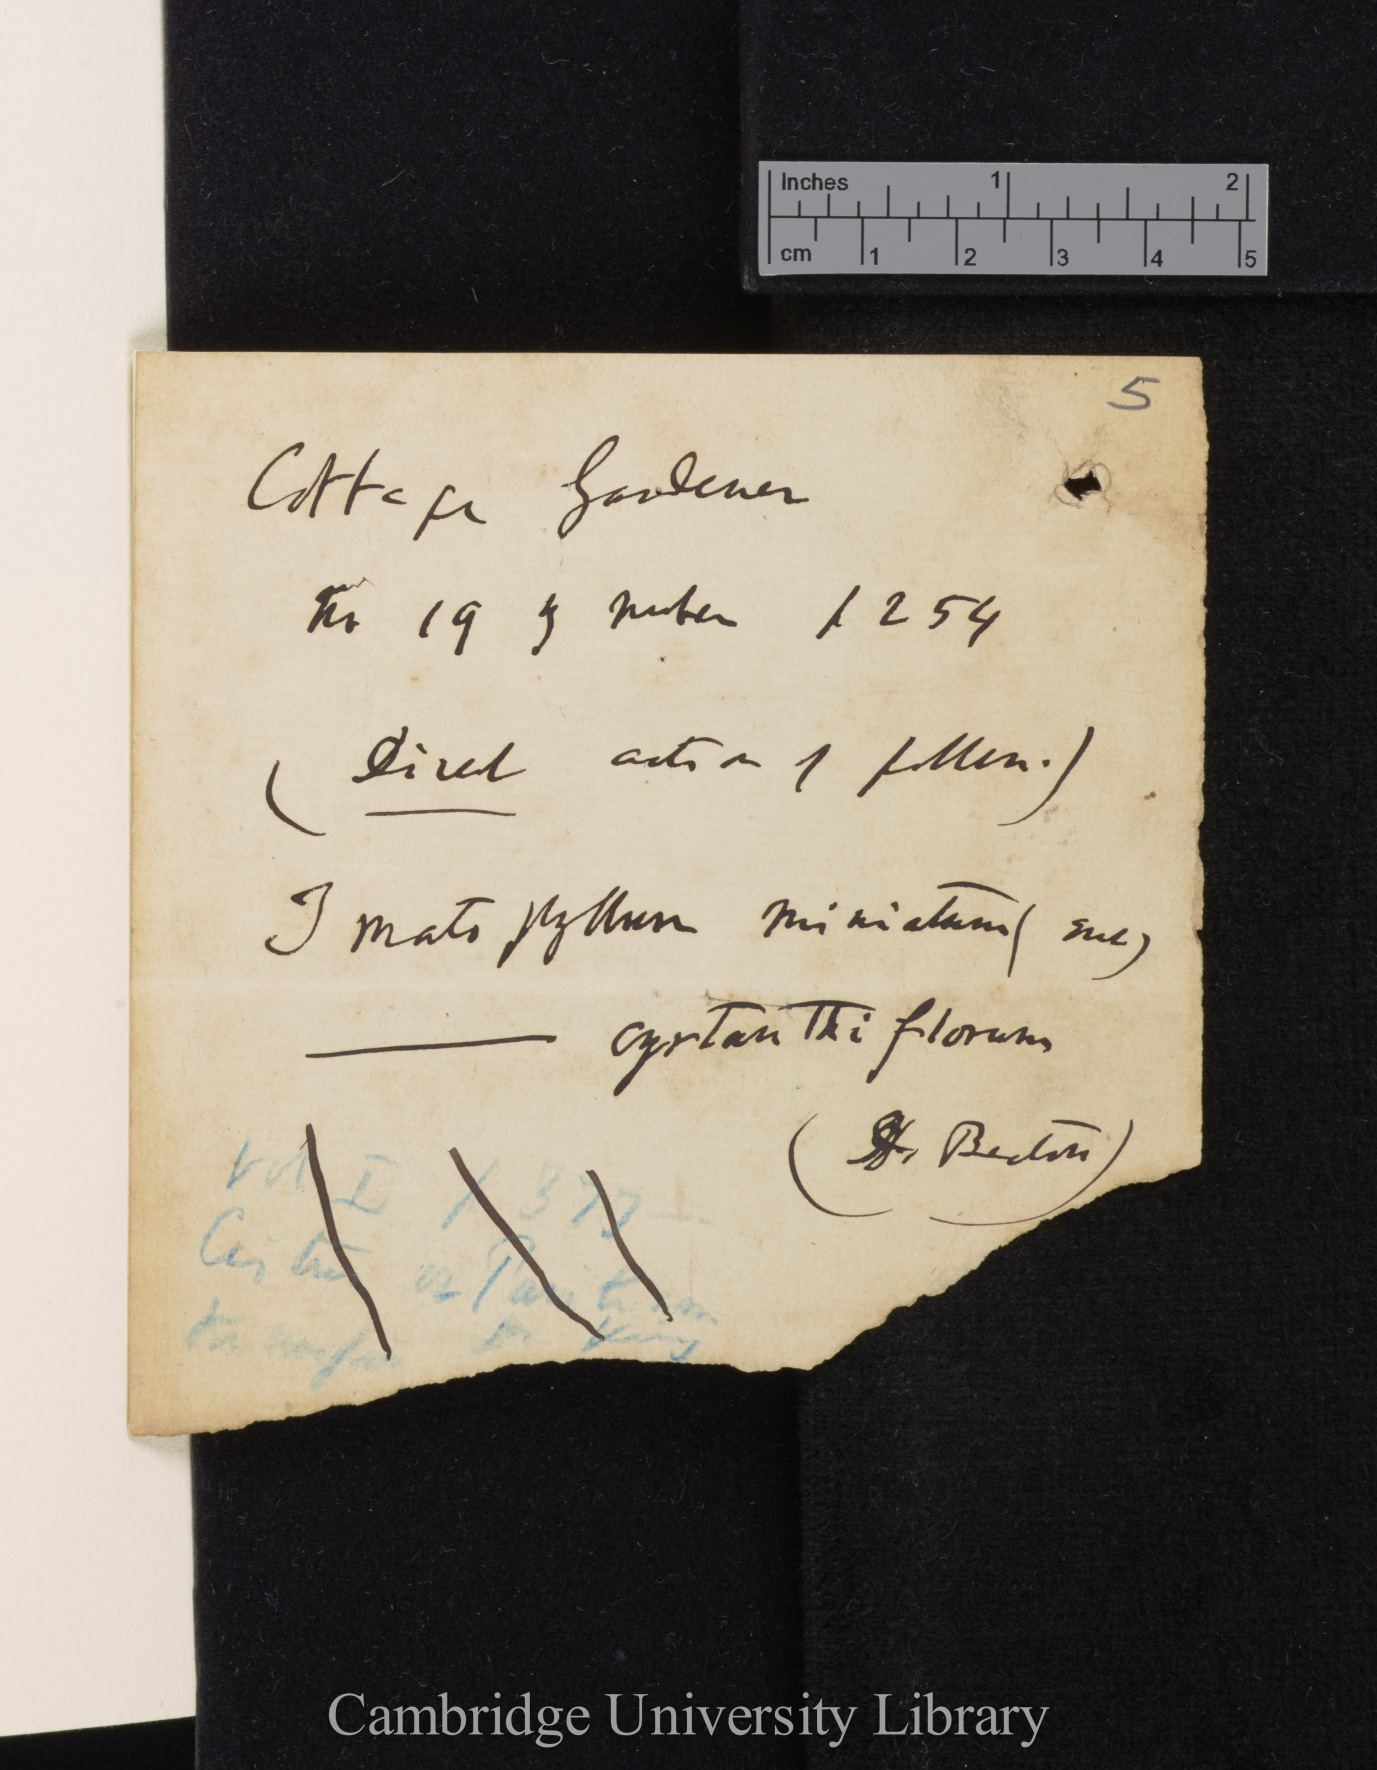 Inches 1 2
cm 1 2 3 4 5
5
Cottage Gardener
19 of number p 254
(Direct action of pollen.)
Imatophyllum miniatum (
——— cyrtanthiflorum
( Beaton)
vol I p 377
or
Cambridge University Library